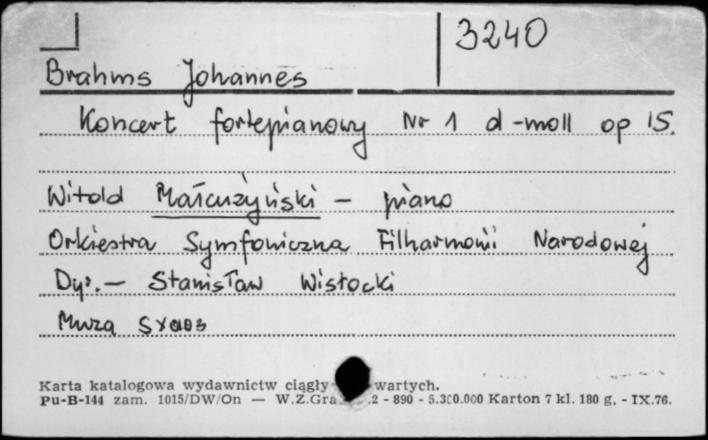 3240
Brahms Johannes
Koncert fortepianowy Nr 1 d-moll op 15.
Witold Małcużyński – piano
Orkiestra Symfoniczna Filharmonii Narodowej
Dyr. – Stanisław Wisłocki
Muza
Karta katalogowa wydawnictw ciągły wartych.
Pu-B-144 zam. 1015/DW/On — W.Z.Gra 2 - 890 - 5.300.000 Karton 7 kl. 180 g. - IX.76.